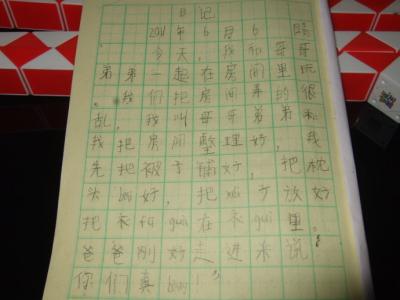 日记
2011年6月6 晴
今天，我和哥哥
弟弟一起在房间里玩
。我们把房间弄的很
乱，我叫哥哥弟弟和
我把房间整理好，我
先把被子铺好，把枕
头 好，把 子放好
把衣 guà在衣guì里。
爸爸刚好走进来说：
你们真 ！”